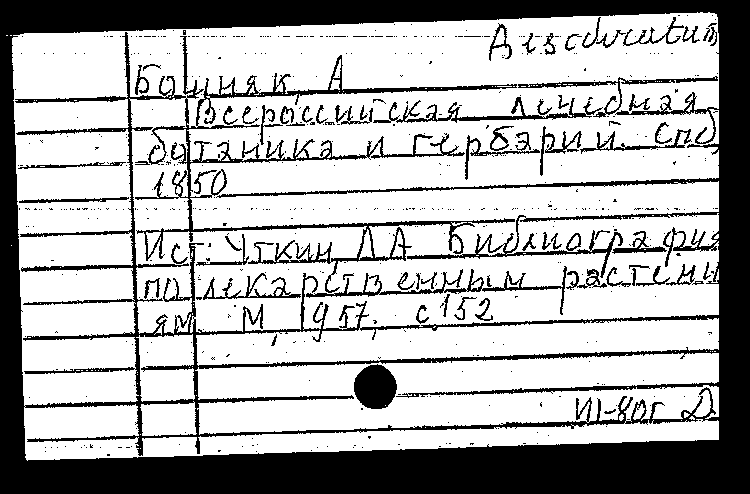 Бошняк, А
Всероссийская лечебная
ботаника и гербарий. Спб
1850
Ист: Уткин, Л А Библиография
по лекарственным растени
ям. М, 1957, с.152
VI-80г Д.